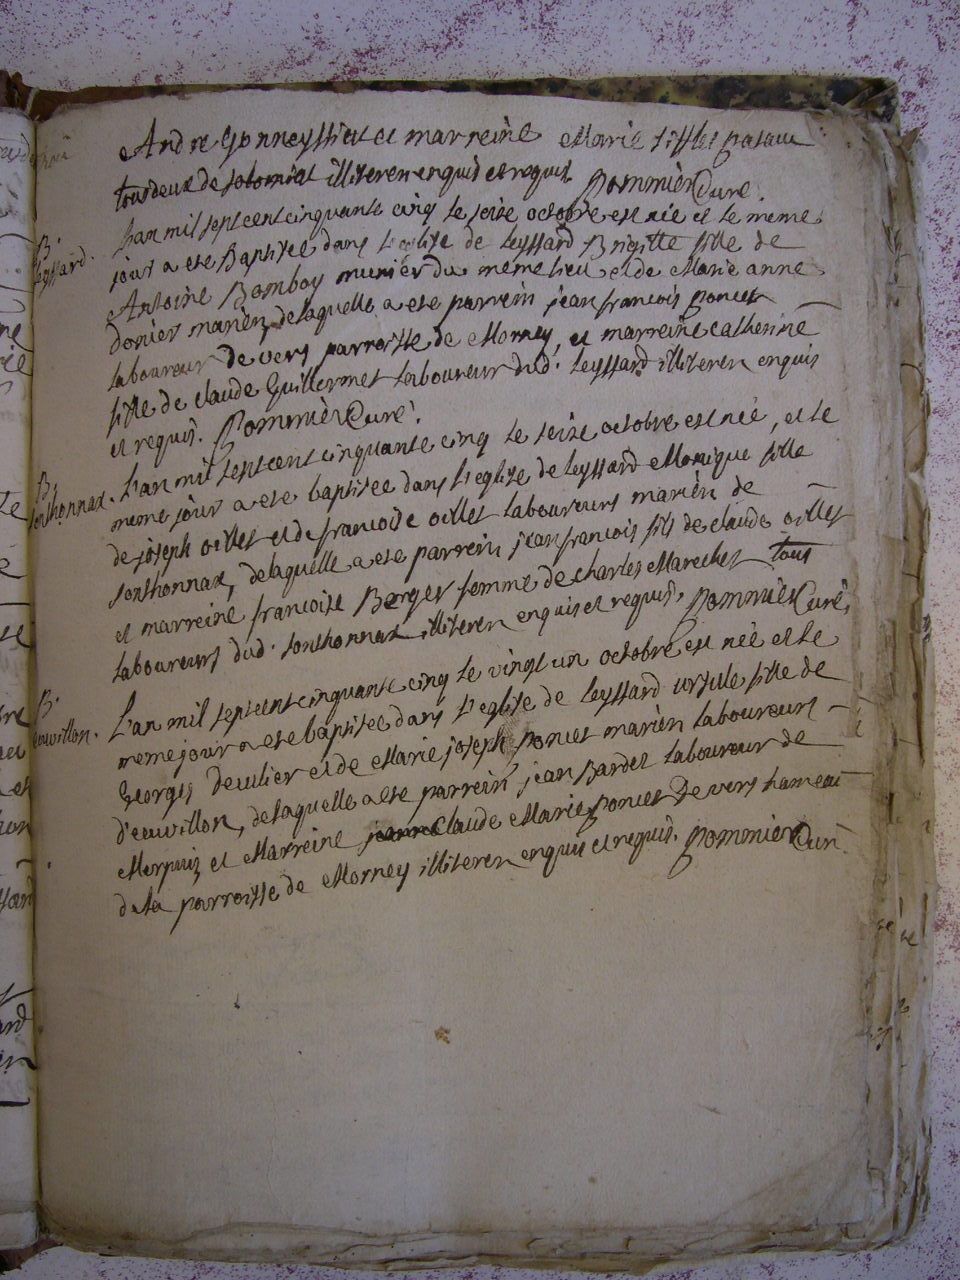 Andre Gonneyssiat et marreine Marie
tous deux de solomiat illiteren enquis et requis. Pommier Curé.
B.
Leyssard.
Lan mil sept cent cinquante cinq le seize octobre est née et le meme
jour a eté Baptisée dans l'eglise de leyssard Brigitte fille de
Antoine Bomboy munier du meme lieu et de Marie anne
donier mariéz, de laquelle a eté parrein jean francois poncet
laboureur de vers parroisse de Mornay, et marreine catherine
fille de claude Guillermet laboureur dud. leyssard illiteren enquis
et requis. Pommier Curé.
B.
sonthonnax.
L'an mil sept cent cinquante cinq le seize octobre est née, et le
meme jour a eté baptisée dans l'eglise de leyssard Monique fille
de joseph oillet et de francoise oillet laboureurs mariéz de
sonthonnax, de laquelle a eté parrein jean francois fils de claude oillet
et marreine francoise Berger femme de charles Marechet tous
laboureurs dud. sonthonnax illiteren enquis et requis. pommier Curé.
B.
L'an mil sept cent cinquante cinq le vingt un octobre est née et le
meme jour a eté baptisée dans l'eglise de leyssard ursule fille de
Georges et de Marie joseph poncet mariéz laboureurs
d'euvillon, de laquelle a eté parrein jean Bardet laboureur de
et Marreine claude Marie poncet de vers hameau
de la parroisse de Mornay illiteren enquis et requis. pommier Curé